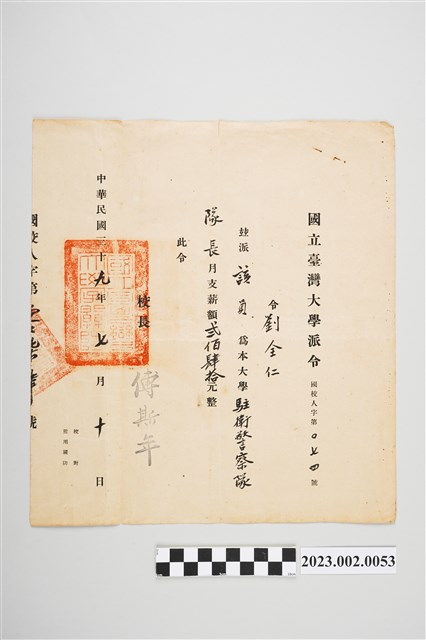 國立臺灣大學派令 國校人字第〇七四號
令劉全仁
玆派該員為本大學駐衛警察隊
隊長月支薪額貳佰肆拾元整
此令
校長 傅斯年
中華民國三十九年七月十日
國校人字第
號
2023.002.0053